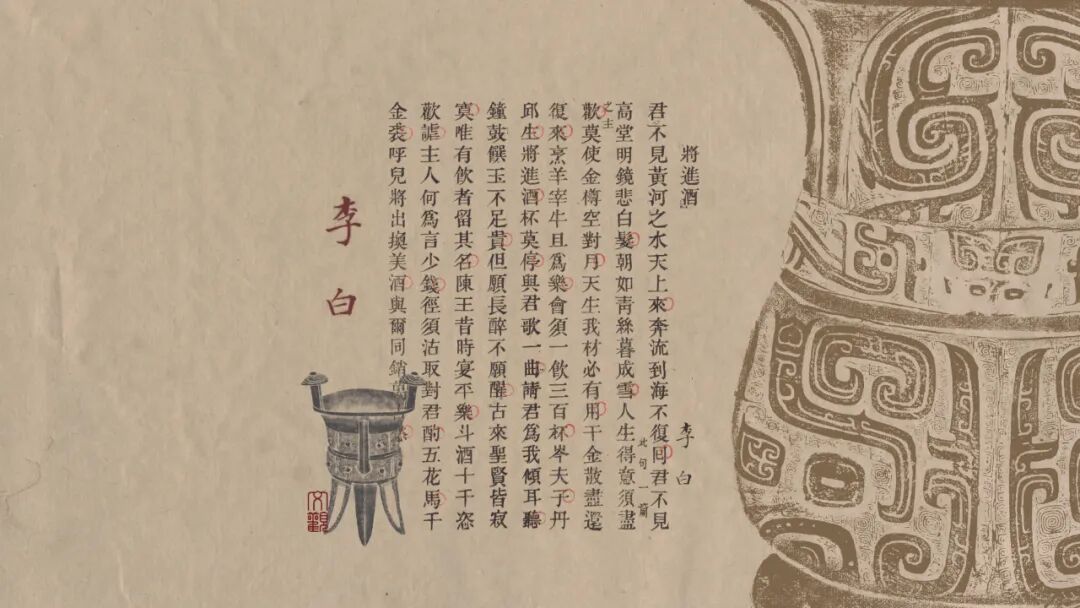 將進酒
李白
君不見黃河之水天上來奔流到海不復回君不見
此句一篇
高堂明鏡悲白髮朝如靑絲暮成雪人生得意須盡
之主
歡莫使金樽空對月天生我材必有用千金散盡還
復來烹羊宰牛且爲樂會須一飲三百杯岑夫子丹
邱生將進酒杯莫停與君歌一曲請君爲我傾耳聽
鐘鼓饌玉不足貴但願長醉不願醒古來聖賢皆寂
寞唯有飲者留其名陳王昔時宴平樂斗酒十千恣
歡謔主人何爲言少錢徑須沽取對君酌五花馬千
金裘呼兒將出換美酒與爾同銷萬
李白